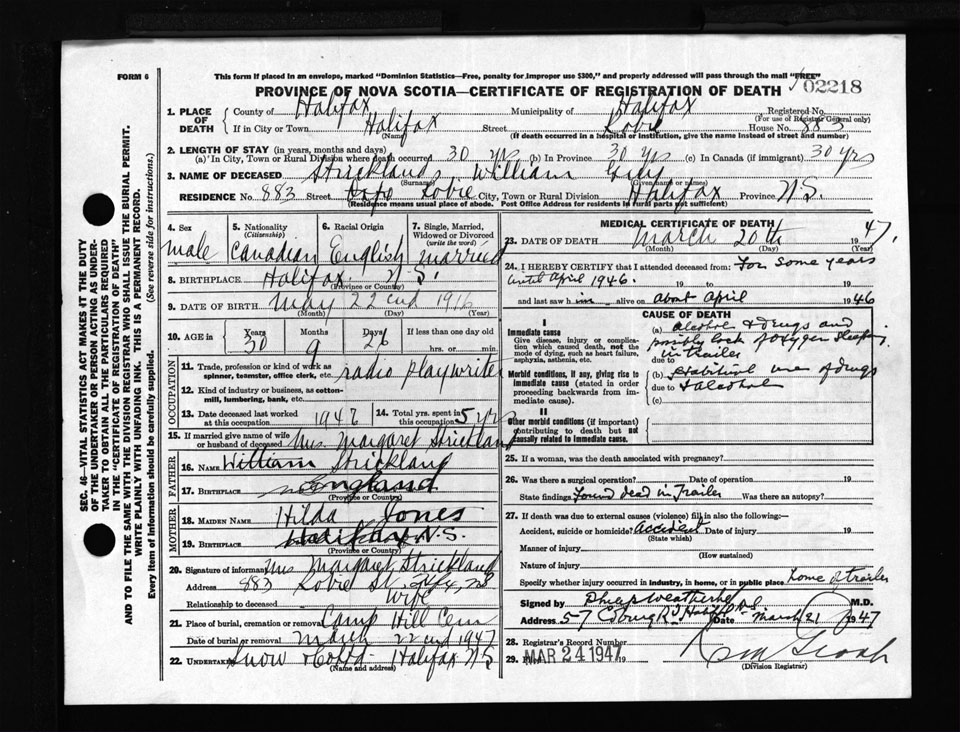 FORM 6
This form if placed in an envelope, marked "Dominion Statistics—Free, penalty for improper use $300," and properly addressed will pass through the mail "FREE"
PROVINCE OF NOVA SCOTIA—CERTIFICATE OF REGISTRATION OF DEATH
02218
1. PLACE OF DEATH { County of Halifax Municipality of Halifax Registered No.
(For use of Registrar General only)
If in City or Town Halifax Street Robie House No. 883
(Name) (If death occurred in a hospital or institution, give the name instead of street and number)
2. LENGTH OF STAY (in years, months and days)
(a) In City, Town or Rural Division where death occurred 30 yrs (b) In Province 30 yrs (c) In Canada (if immigrant) 30 yrs
3. NAME OF DECEASED Strickland, William Guy
(Surname) (Given name or names)
RESIDENCE No. 883 Street Robie City, Town or Rural Division Halifax Province N.S.
(Residence means usual place of abode. Post Office Address for residents in rural parts not sufficient)
4. Sex male
5. Nationality (Citizenship) Canadian
6. Racial Origin English
7. Single, Married, Widowed or Divorced (write the word) married
8. BIRTHPLACE Halifax N.S.
(Province or Country)
9. DATE OF BIRTH May 22nd 1916
(Month) (Day) (Year)
10. AGE in { Years 30 Months 9 Days 26 If less than one day old
hrs. or min.
OCCUPATION
11. Trade, profession or kind of work as spinner, teamster, office clerk, etc. radio playwriter
12. Kind of industry or business, as cotton-mill, lumbering, bank, etc.
13. Date deceased last worked at this occupation 1947
14. Total yrs. spent in this occupation 5 yrs
15. If married give name of wife or husband of deceased Mrs. Margaret Strickland
FATHER
16. NAME William Strickland
17. BIRTHPLACE England
(Province or Country)
MOTHER
18. MAIDEN NAME Hilda Jones
19. BIRTHPLACE Halifax N.S.
(Province or Country)
20. Signature of informant Mrs Margaret Strickland
Address 883 Robie St
Relationship to deceased wife
21. Place of burial, cremation or removal Camp Hill Cem
Date of burial or removal March 22nd 1947
22. Undertaker Snow & Co Ltd Halifax N.S
(Name and address)
MEDICAL CERTIFICATE OF DEATH
23. DATE OF DEATH March 20th 1947.
(Month) (Day) (Year)
24. I HEREBY CERTIFY that I attended deceased from: For some years
until April 1946. 19 to 19
and last saw him alive on about April 1946
CAUSE OF DEATH
I
Immediate cause
Give disease, injury or complication which caused death, not the mode of dying, such as heart failure, asphyxia, asthenia, etc.
(a) alcohol & drugs and
possibly lack of oxygen sleeping
in trailer
due to
Morbid conditions, if any, giving rise to immediate cause (stated in order proceeding backwards from immediate cause).
(b) Habitual use of drugs
due to & alcohol
(c)
II
Other morbid conditions (if important) contributing to death but not causally related to immediate cause.
25. If a woman, was the death associated with pregnancy?
26. Was there a surgical operation? Date of operation 19
State findings Found dead in Trailer Was there an autopsy?
27. If death was due to external causes (violence) fill in also the following:—
Accident, suicide or homicide? Accident Date of injury 19
(State which)
Manner of injury
(How sustained)
Nature of injury
Specify whether injury occurred in industry, in home, or in public place home & trailer
Signed by M.D.
Address 57 Coburg Rd Halifax N.S Date March 21 1947
28. Registrar's Record Number
29. Filed MAR 24 1947 19
(Division Registrar)
SEC. 46—VITAL STATISTICS ACT MAKES IT THE DUTY
OF THE UNDERTAKER OR PERSON ACTING AS UNDERTAKER
TO OBTAIN ALL THE PARTICULARS REQUIRED
IN THE "CERTIFICATE OF REGISTRATION OF DEATH"
AND TO FILE THE SAME WITH THE DIVISION REGISTRAR WHO SHALL ISSUE THE BURIAL PERMIT.
WRITE PLAINLY WITH UNFADING INK. THIS IS A PERMANENT RECORD.
Every item of information should be carefully supplied. (See reverse side for instructions.)